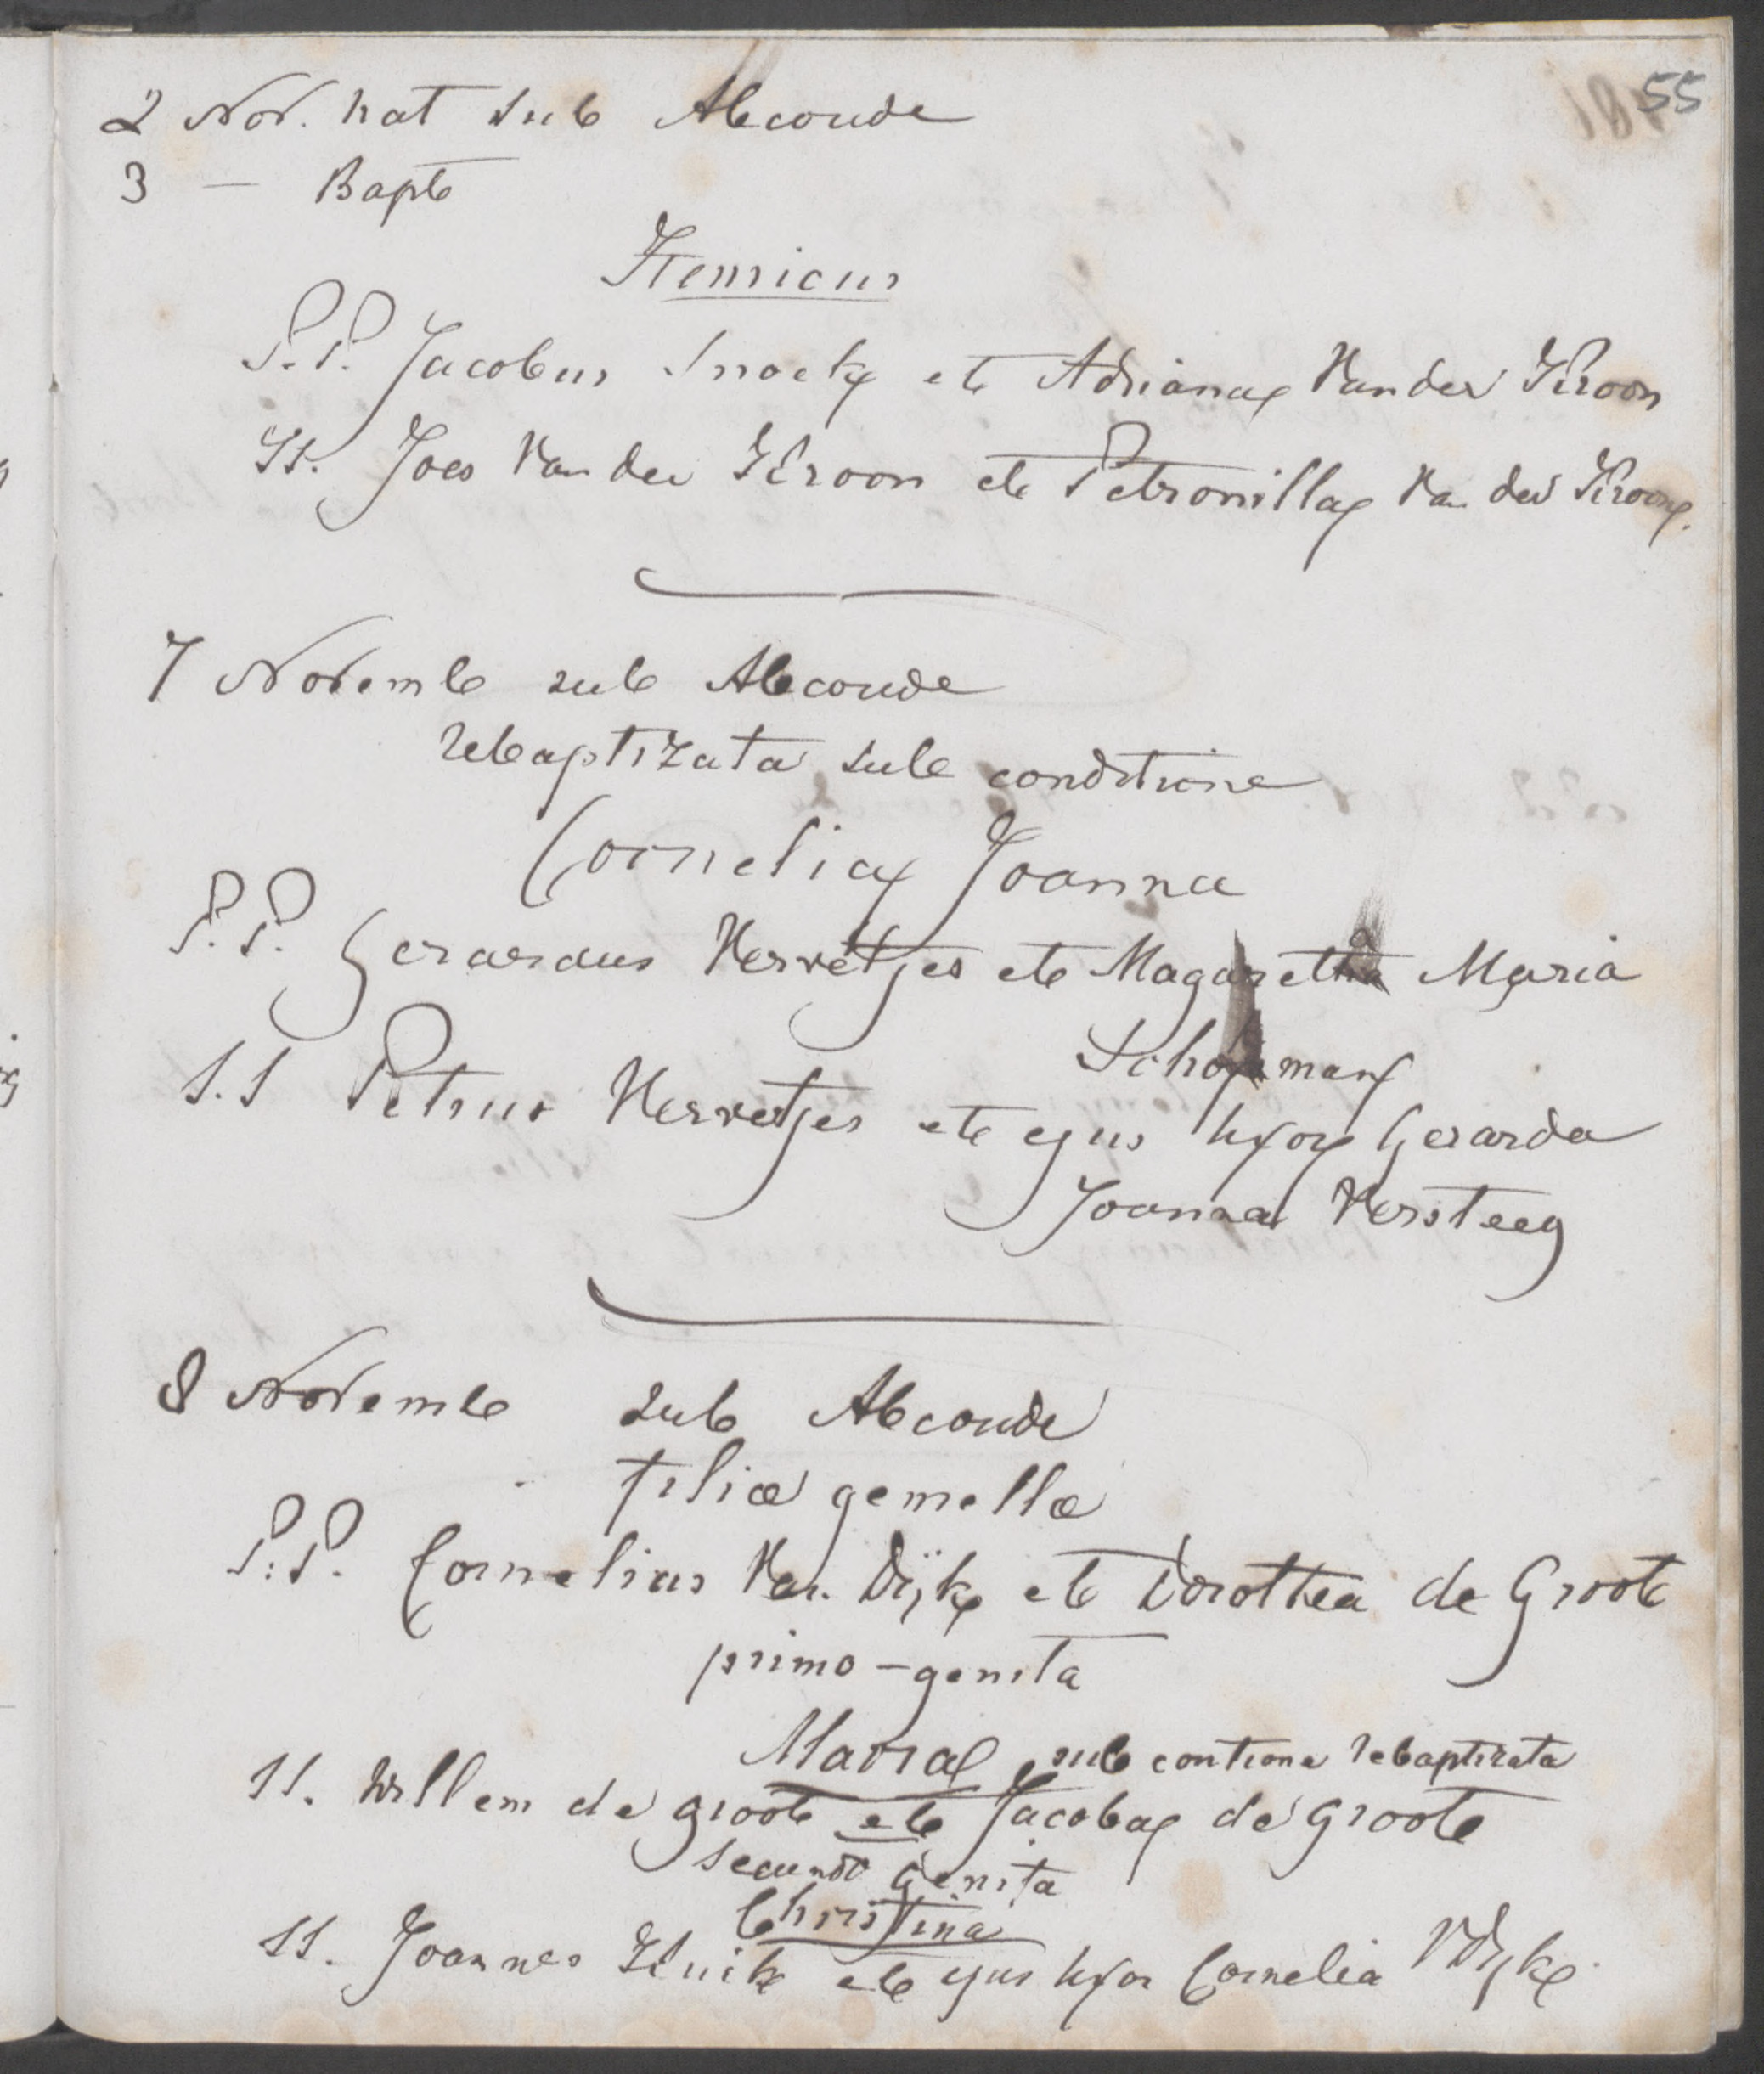 55
2 Nov. nat sub Abcoude
3 — Bapt
Henricus
P.P. Jacobus Snoek et Adriana Van der Kroon
SS. Joes Van der Kroon et Petronilla Van der Kroon.
7 Novemb sub Abcoude
rebaptizata sub conditione
Cornelia Joanna
P.P. Gerardus Vervetjes et Magaretha Maria
Schoeman
S.S Petrus Vervetjes et ejus Uxor Gerarda
Joanna Versteeg
8 Novemb sub Abcoude
filiæ gemellæ
P.P. Cornelius Van Dijk et Dorothea de Groot
primo-genita
Maria sub contione rebaptizata
SS. Willem de groot et Jacoba de groot
secundo genita
Christina
SS. Joannes Kuik et ejus Uxor Cornelia VDijk